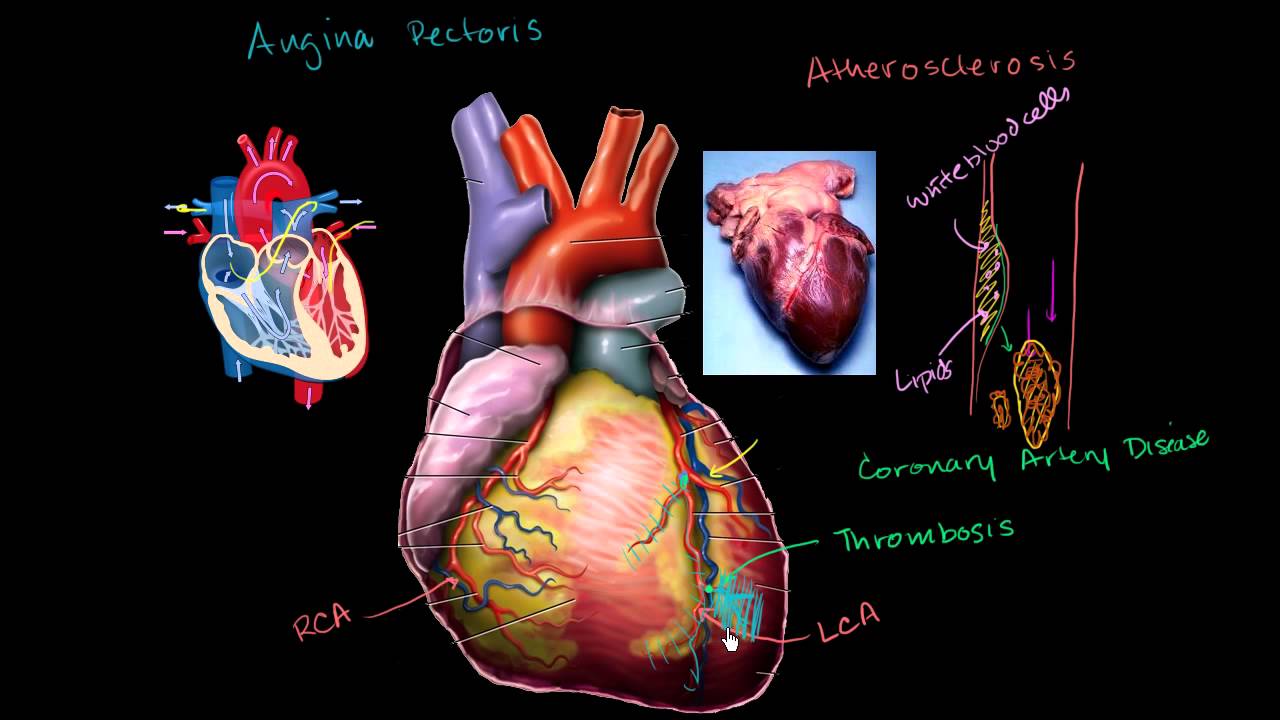 Angina Pectoris
Atherosclerosis
White blood cells
Lipids
Coronary Artery Disease
Thrombosis
RCA
LCA